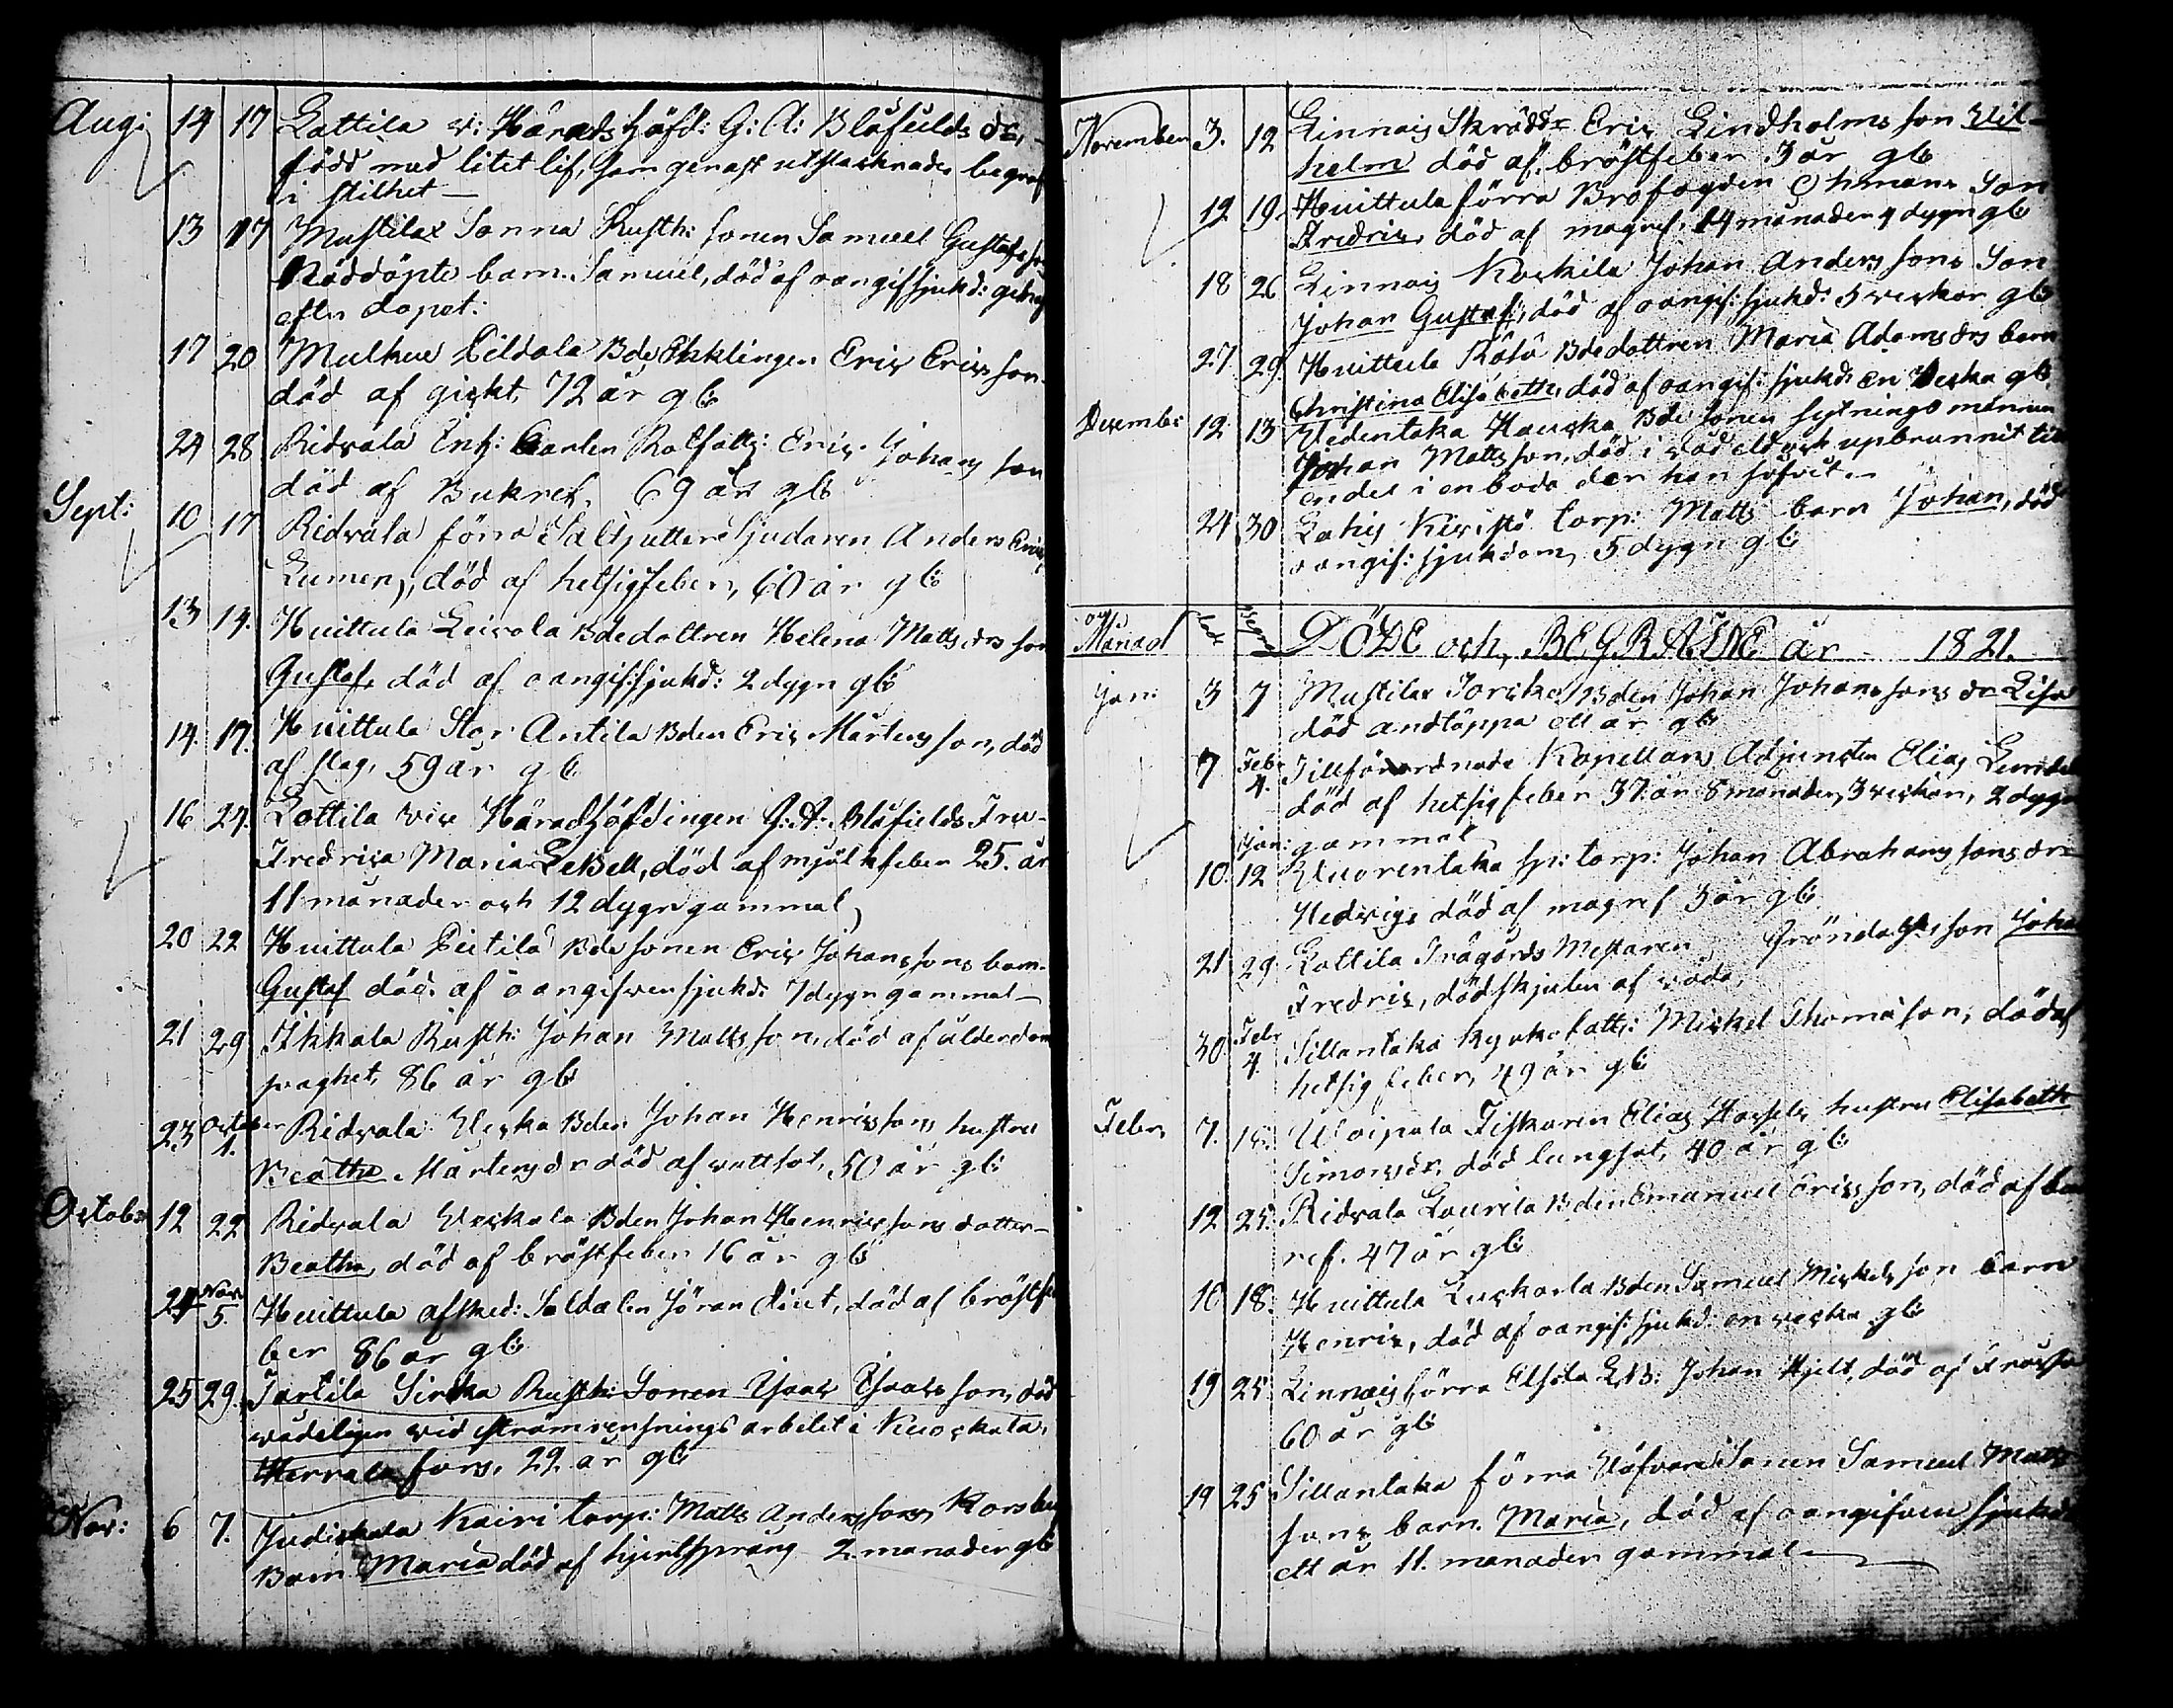 Aug: 14 17 Lottila v: Härads höfd: G: A: Blåfields dr,
född med litet lif, som genast utslacknade begrof
i stilhet —
13 17 Mustila Sanna Rusth: sonen Samuel Gustafs
Nöddöpte barn Samuel, död af oangif sjukd:
efter dopet:
17 20 Mulkue Pildola Bde Eric Ericsson
död af gickt, 72 år gl:
24 28 Ridvala Inh: Eric Johansson
död af Bukref, 69 år gl:
Sept: 10 17 Ridvala förra Saltputters Sjudaren Anders Erics
Lumen, död af hetsigfeber, 60 år gl:
13 14. Huittula Leivola Bdedottren Helena Mattsdrs son
Gustaf, död af oangif: sjukd: 2 dygn gl:
14. 17. Huittula Stor Antila Bden Eric Mårtensson, död
af slag, 59 år gl:
16 24. Lottila vice Häradshöfdingen G: A: Blåfields Fru
Fredrica Maria LeBell, död af mjölkfeber 25. år
11 månader och 12 dygn gammal
20 22 Huittula Pietilä Bdesonen Eric Johanssons barn
Gustaf död af oangifven sjukd: 7 dygn gammal —
21 29 Ikkala Rusth: Johan Mattsson, död af ålderdoms
svaghet, 86 år gl:
23 October 1. Ridvala Ucka Bden Johan Henricssons hustru
Beatha Mårtensdr död af vattsot, 50 år gl:
Octobr 12 22 Ridvala Bden Johan Henricssons dotter
Beatha, död af bröstfeber 16 år gl:
24 Nov 5. Huittula afsked: Soldaten Jöran död af bröstfe
ber 86 år gl:
25 29. Tortila Sirka Rusth: Sonen Isaac Isaacsson, död
vådeligen vid strömrensnings arbetet i Kuockala,
Herrala fors, 22 år gl:
Nov: 6 7. Judickala Kairi torp: Matts Anderssons
Barn Maria död af hjertsprång 2 månader gl:
November 3. 12 Linnais Skrädd: Eric Lindholms son Vil-
helm död af bröstfeber 3 år gl:
12 19. Huittula förra Brofogden Öhmans Son
Fredric, död af magref, 14 månader 4 dygn gl:
18 26 Linnais Koskila Johan Anderssons Son
Johan Gustaf, död af oangif: sjukd: 3 veckor gl:
27 29. Huittula Bdedottren Maria Adamsdrs barn
Christina Elisabeth, död af oangif: sjukd: en Vecka gl:
Decembr 12 13 Vedentaka Hauska Bdesonen
Johan Mattsson, död i vådeld och upbrunnit till
endel i en boda der han sofvit
24 30 Lahis Kivistö torp: Matts barn Johan, död
oangif: sjukdom, 5 dygn gl:
och
Månad död Begr: DÖDE och BEGRAFNE år 1821.
Jan: 3 7 Mustila Bden Johan Johanssons dr Lisa
död andtäppa ett år gl:
7 Febr 4. Tillförordnade Kapellans Adjuncten Elias
död af hetsig feber 37 år 8 månader, 3 veckor, 2 dygn
gammal
Jan: 10. 12 Vuorentaka sp: torp: Johan Abrahamssons dr
Hedvig, död af magref 3 år gl:
21 29 Lottila Trägårds Mestaren Gröndahls son Joha
Fredric, död skjuten af våda,
30 Febr 4. Sillantaka Kyrkofattig: Mickel Thomasson, död af
hetsig feber, 49 år gl:
Febr: 7. Uoipala Fiskaren Elias hustru Elisabeth
Simonsdr, död lungsot, 40 år gl:
12 25. Ridvala Laurila Bden Emanuel Ericsson, död af
ref. 47 år gl:
16 18. Huittula Luckarla Bden Samuel Mickelsson barn
Henric, död af oangif: sjukd: en vecka gl:
19 25 Linnais förra Johan Hjelt, död af
60 år gl:
19 25 Sillantaka förra Sonen Samuel Matts
sons barn Maria, död af oangifven sjukd
ett år 11. månader gammal